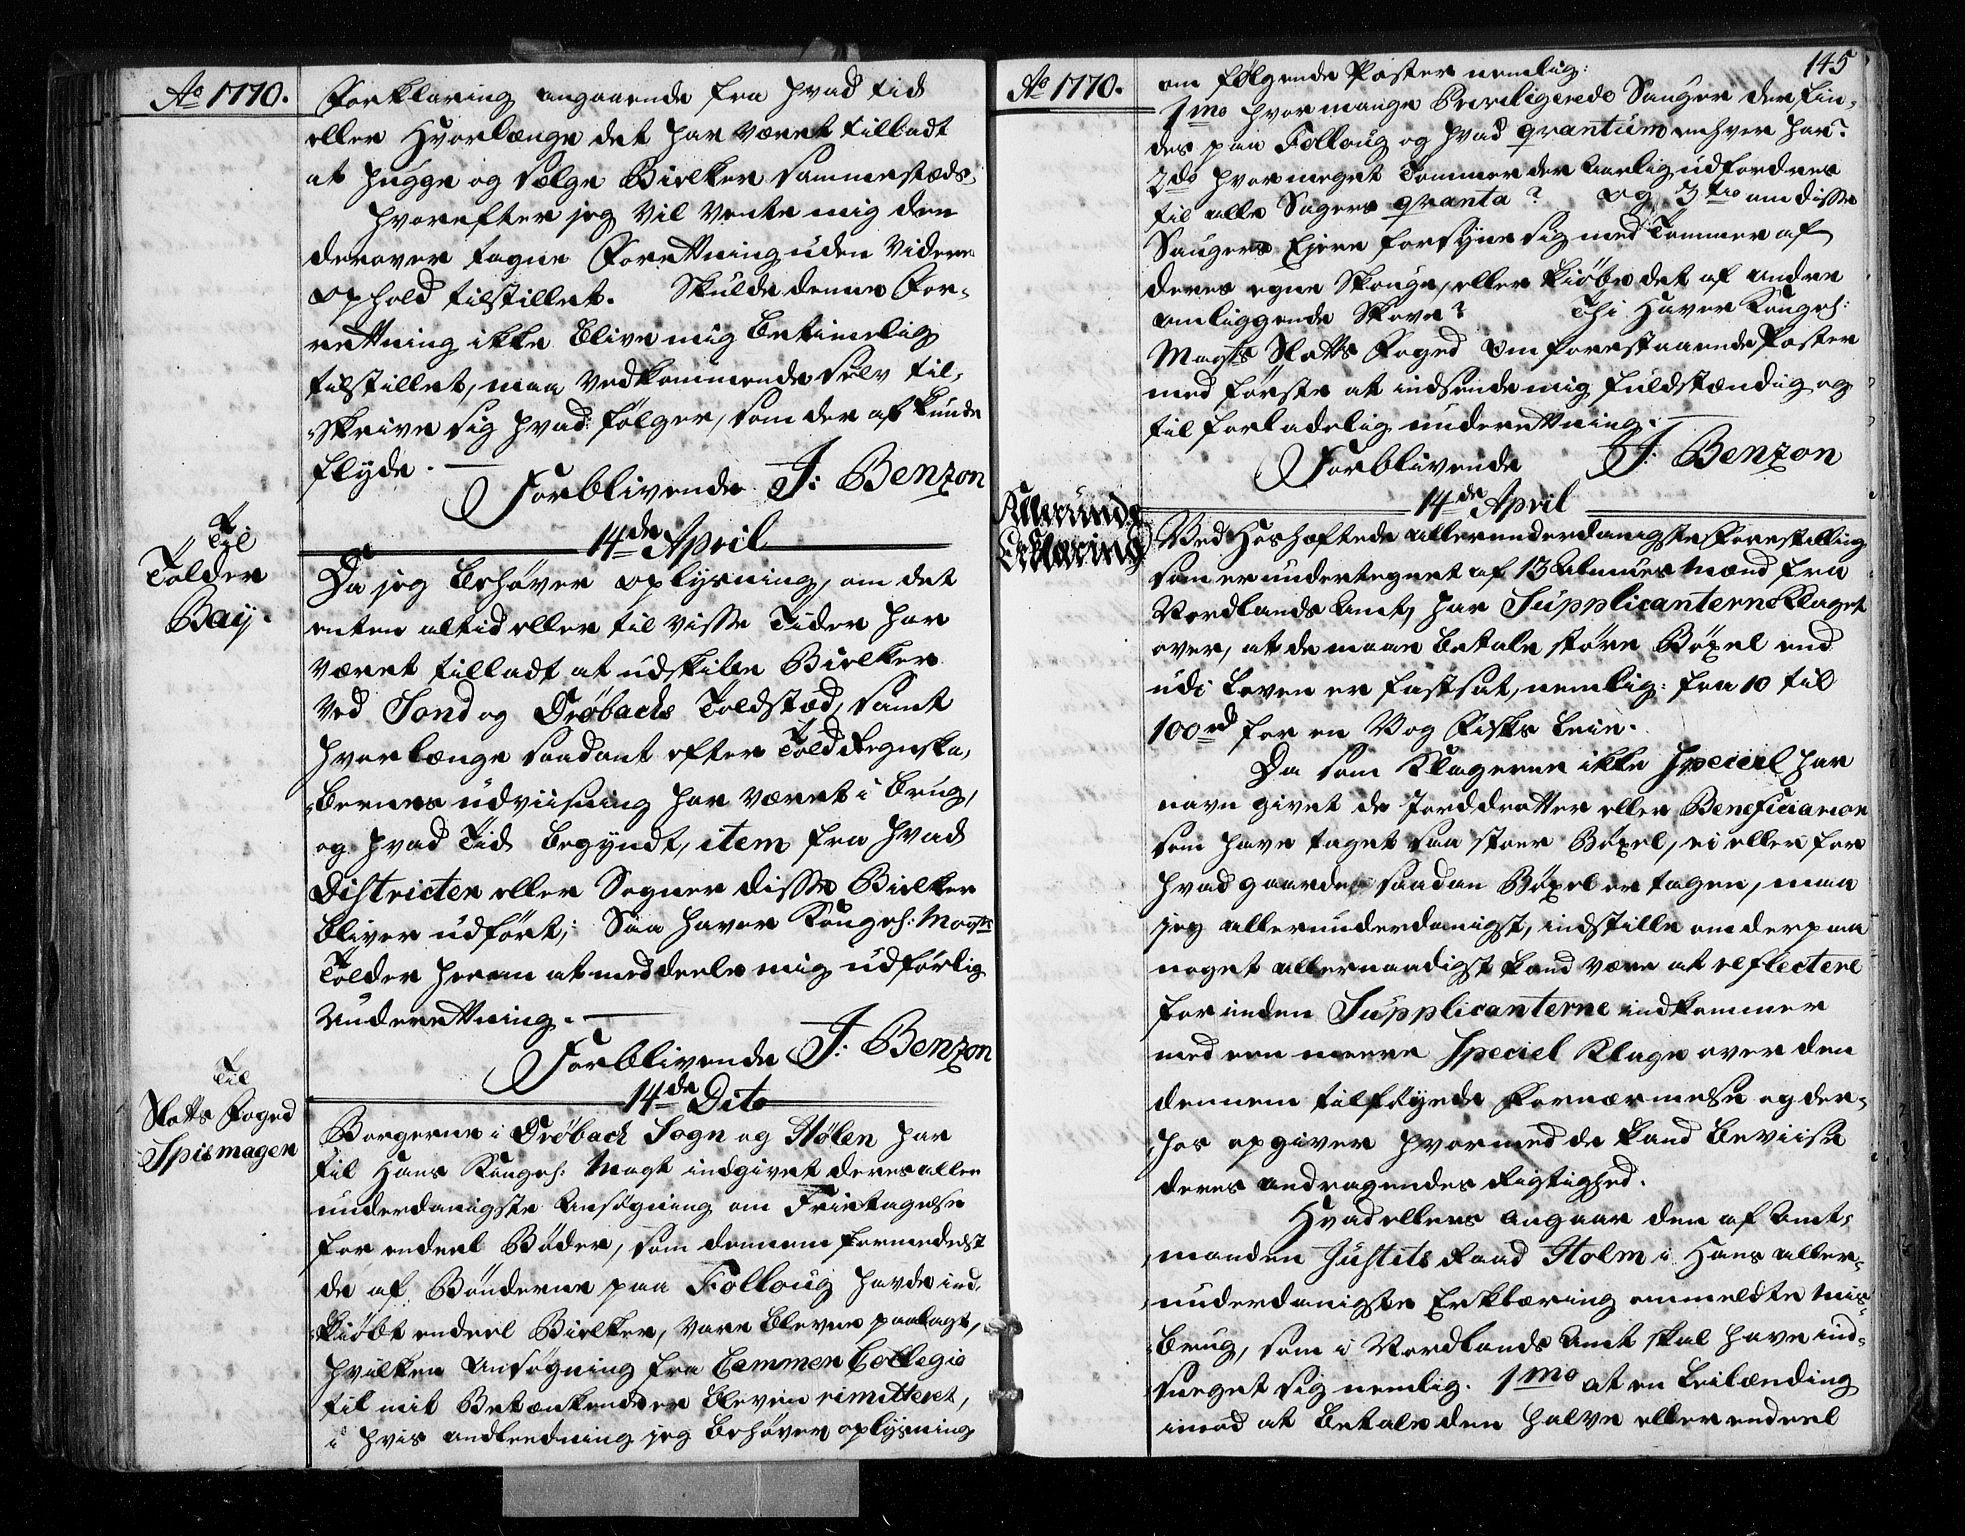 Ao 1770.
Forklaring angaaende fra hvad tid
eller Hvorlænge det har været tilladt
at hugge og sælge Bielker sammestæds,
hvorefter jeg vil vente mig den
derover tagne Forretning uden videre
Ophold tilstillet. Skulde denne For-
retning ikke blive mig betimelig
tilstillet, maa vedkommende selv til-
skrive sig hvad følger, som der af kunde
flyde.
Forblivende J: Benzon
14de April
Til
Tolder
Bay.
Da jeg behøver oplysning, om det
enten altid eller til visse Tider har
været tilladt at udskibe Bielker
ved Sond og Drøbachs Toldstæd, samt
hvorlænge saadant efter Told Regnska-
bernes udviisning har været i brug,
og hvad Tid begyndt, item fra hvad
Districter eller Sogner disse Bielker
bliver udført; Saa haver Kongel: Mayts
Tolder herom at meddeele mig udførlig
Underretning.
Forblivende J: Benzon
14de Dito
Til
Slotts Foged
Spismagen
Borgerne i Drøbach Sogn og Hølen har
til Hans Kongel: Mayt indgivet deres aller
underdanigste Ansøgning om Fritagelse
for endeel Bøder, som dennem formedelst
de af Bønderne paa Folloug havde ind-
kiøbt endeel Bielker, vare bleven paalagt,
hvilken Ansøgning fra Cammer Collegio
til mit Betænkende er bleven remitteret,
i hvis anledning jeg behøver oplysning
145
Ao 1770.
om følgende Poster nemlig:
1mo hvor mange Priviligerede Sauger der fin-
des paa Folloug og hvad qvantum enhver har?
2do hvor meget Tømmer der aarlig udfordres
til alle Sagers qvanta? Og 3tio om disse
Saugers Ejere forsyne sig med Tømmer af
deres egne Skouge, eller kiøbe det af andre
omliggende Skove? Thi haver Kongel:
Mayts Slotts Foged om forestaaende Poster
med første at indsende mig fuldstændig og
tilforladelig underretning.
Forblivende J: Benzon
14de April
Allerunde
Erklæring
Ved Hoshæftede allerunderdanigste Forestilling
som er undertegnet af 13 Almues Mænd fra
Nordlands Amt, har Supplicanterne klaget
over, at de maae betale større Bøxel end
udi Loven er fastsat, nemlig: fra 10 til
100 rd for en Vog Fiskes Leie.
Da som Klagerne ikke speciel har
navn givet de Jorddrotter eller Beneficiarier
som have taget saa stoer Bøxel, ei eller for
hvad gaarde saadan Bøxel er tagen, maa
jeg allerunderdanigst, indstille om derpaa
noget allernaadigst kand være at reflectere
forinden Supplicanterne indkommer
med een meere Speciel Klage over den
dennem tilføyede Fornærmelse og der-
hos opgiver hvormed de kand beviise
deres andragendes Rigtighed.
Hvad ellers angaar den af Amt-
manden Justits Raad Holm i Hans aller-
underdanigste Erklæring ommeldte mis-
brug, som i Nordlands Amt skal have ind-
sneget sig nemlig. 1mo at en Leilænding
imod at betale den halve eller endeel